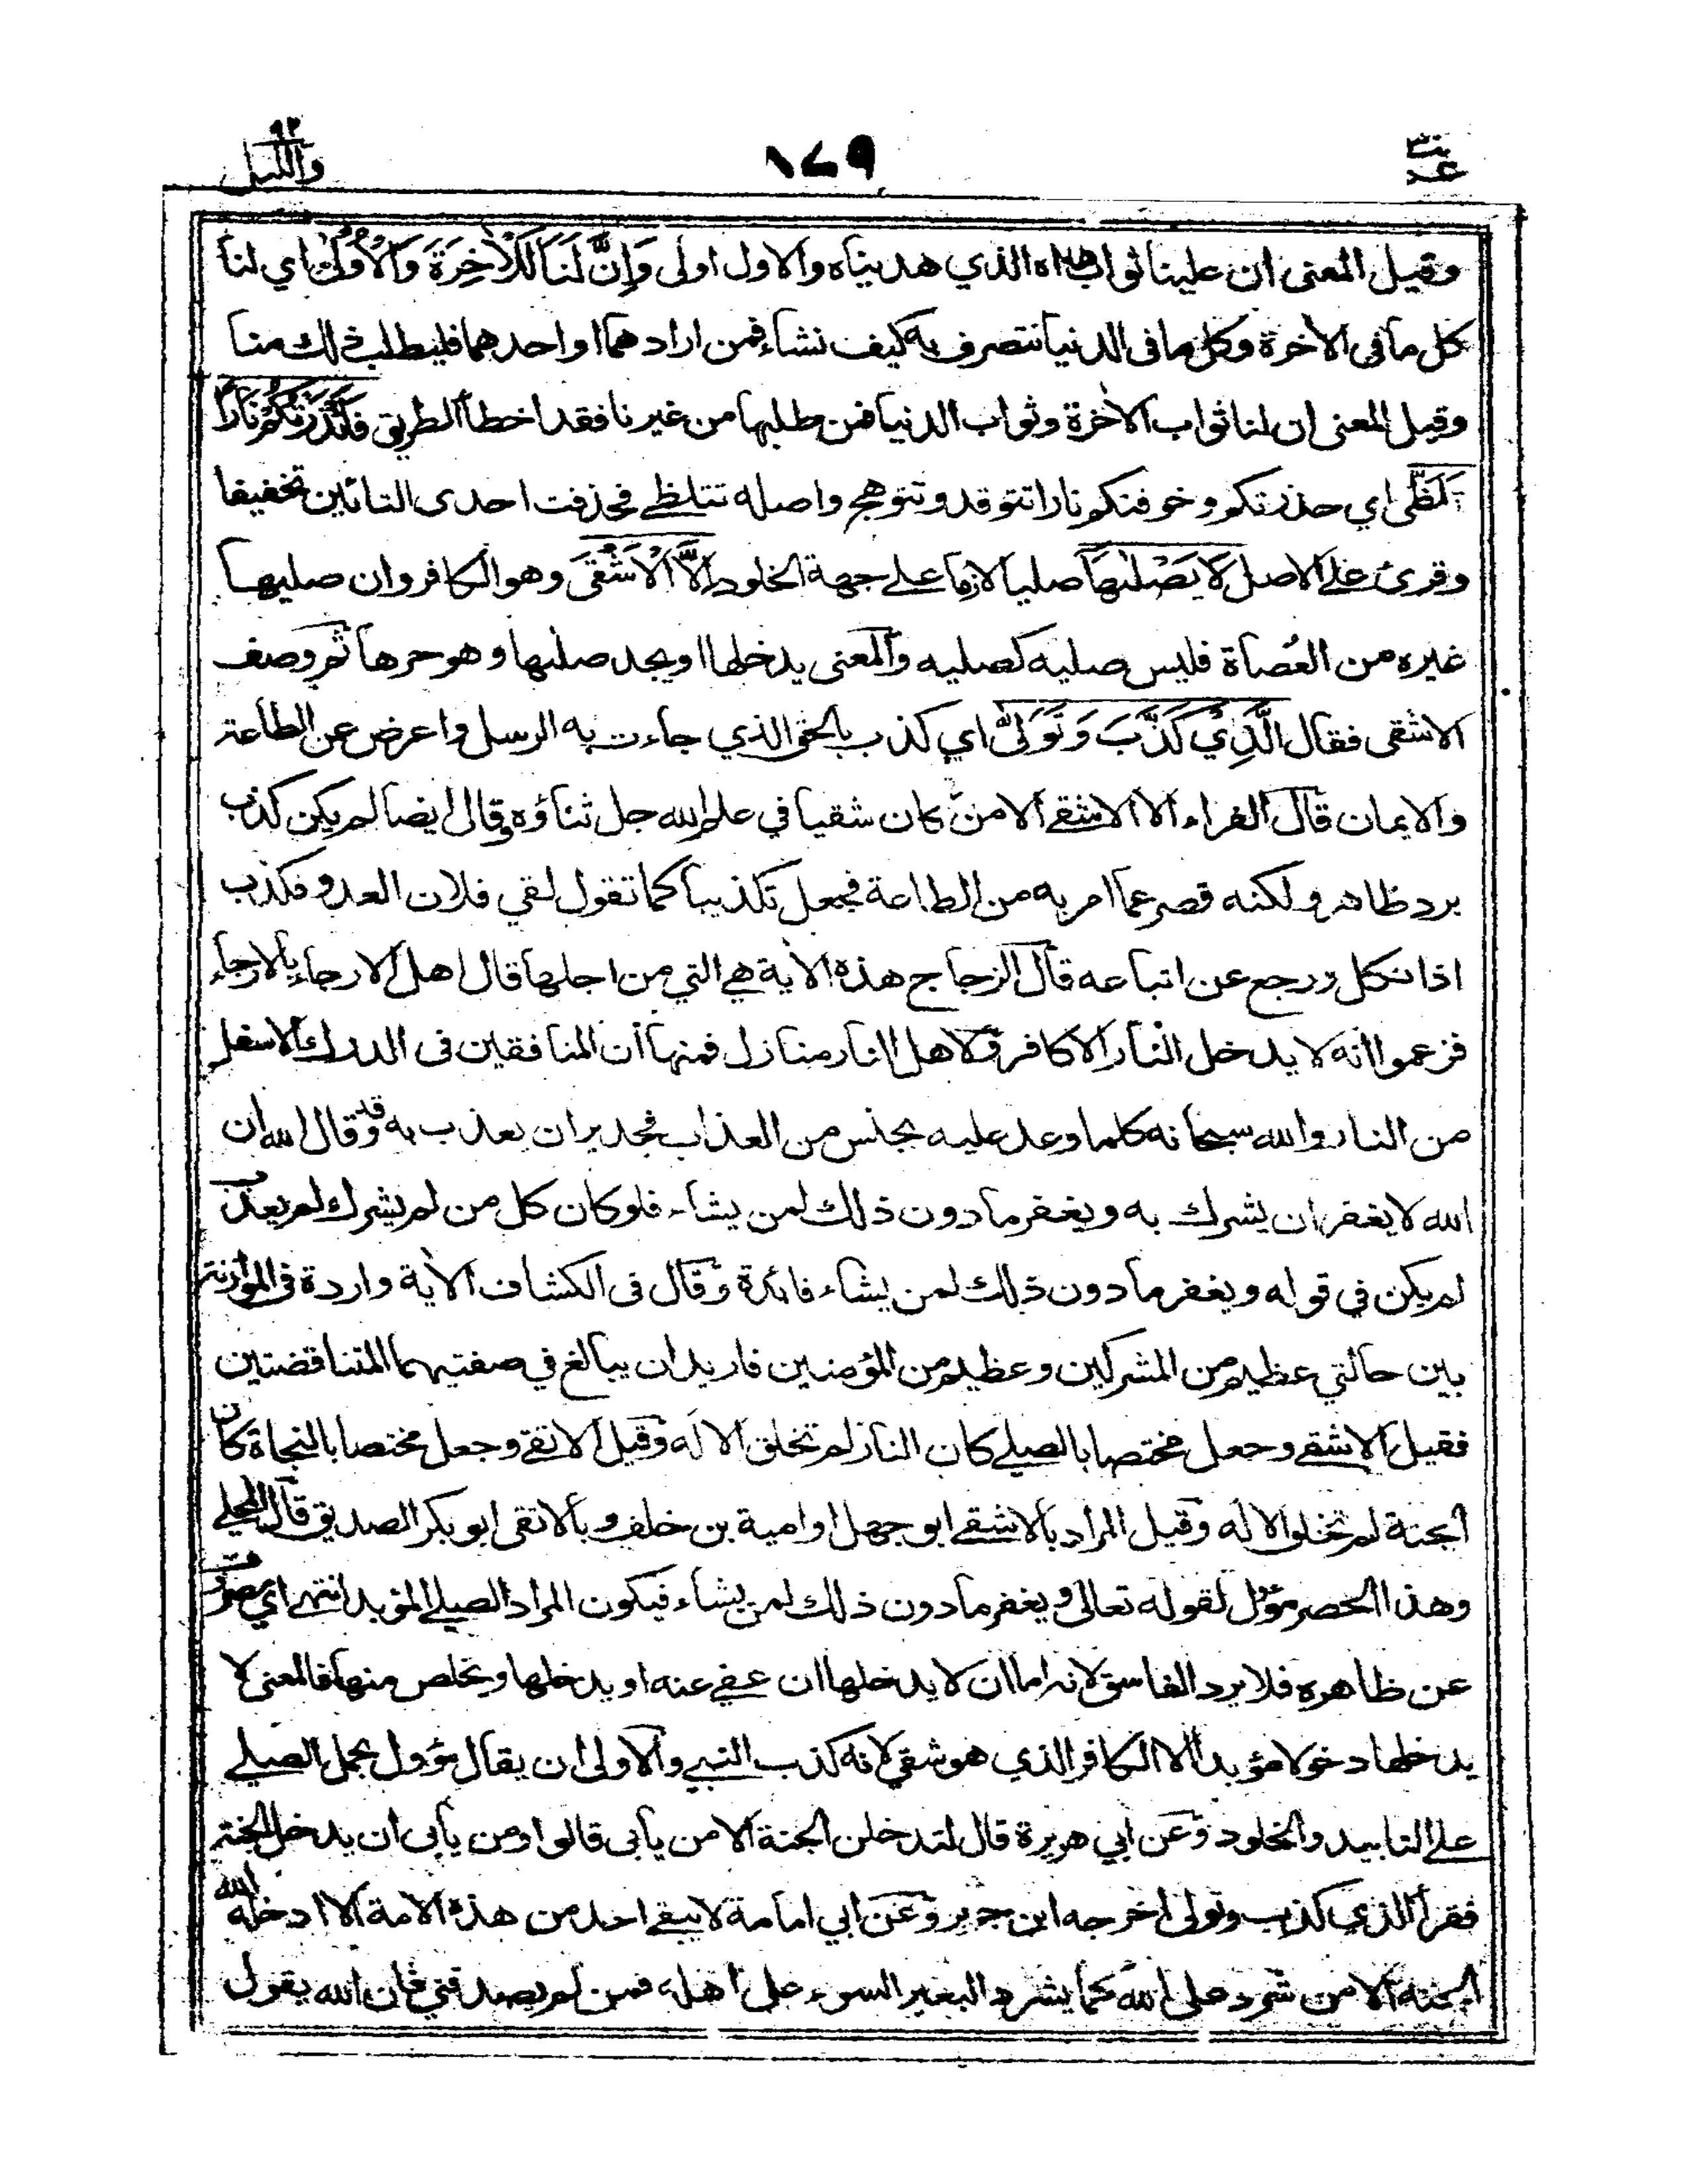 عمّ ٣٠
١٧٩
والليل ٩٢
وقيل المعنى ان علينا ثواب هداه الذي هديناه والاول اولى وَاِنَّ لَنَا لَلْاٰخِرَةَ وَالْاُوْلٰى اي لنا
كل ما فى الاٰخرة وكل ما فى الدنيا نتصرف به كيف نشاء فمن ارادهما او احدهما فليطلب ذلك منا
وقيل المعنى ان لنا ثواب الاٰخرة وثواب الدنيا فمن طلبها من غيرنا فقد اخطأ الطريق فَاَنْذَرْتُكُمْ نَارًا
تَلَظّٰى اي حذرتكم وخوفتكم نارا تتوقد وتتوهج واصله تتلظے فحذفت احدى التائين تخفيفا
وقرئ علے الاصل لَا يَصْلٰىهَا صليا لازما علے جهة الخلود اِلَّا الْاَشْقَى وهو الكافر وان صليها
غيره من العُصاة فليس صليه كصليه والمعنى يدخلها او يجد صلٰيها وهو حرها ثم وصف
الاشقى فقال الَّذِيْ كَذَّبَ وَتَوَلّٰى اي كذب بالحق الذي جاءت به الرسل واعرض عن الطاعة
والايمان قال الفراء الا الاشقے الا من كان شقيا في علم الله جل ثناؤه وقال ايضا لم يكن كذب
برد ظاهر ولكنه قصر عما امر به من الطاعة فجعل تكذيبا كما تقول لقي فلان العدو فكذب
اذا نكل ورجع عن اتباعه قال الزجاج هذه الاٰية هي التي من اجلها قال اهل الارجاء بالارجاء
فزعموا انه لا يدخل النار الا كافر ولاهل النار منازل فمنها ان المنافقين فى الدرك الاسفل
من النار والله سبحانه كلما وعد عليه بجنس من العذاب فجدير ان يعذب به وقد قال الله ان
الله لا يغفر ان يشرك به ويغفر ما دون ذلك لمن يشاء فلو كان كل من لم يشرك لم يعذب
لم يكن في قوله ويغفر ما دون ذلك لمن يشاء فائدة وقال فى الكشاف الاٰية واردة فى الموازنة
بين حالتي عظيم من المشركين وعظيم من المؤمنين فاريد ان يبالغ في صفتيهما المتناقضتين
فقيل الاشقے وجعل مختصا بالصلے كان النار لم تخلق الا له وقيل الاتقے وجعل مختصا بالنجاة كان
الجنة لم تخلق الا له وقيل المراد بالاشقے ابو جهل او امية بن خلف وبالاتقى ابو بكر الصديق قال المحلے
وهذا الحصر مؤل لقوله تعالى ويغفر ما دون ذلك لمن يشاء فيكون المراد الصلے المؤبد انتهے اي مصروف
عن ظاهره فلا يرد الفاسق لانه اما ان لا يدخلها ان عفے عنه او يدخلها ويخلص منها فالمعنى لا
يدخلها دخولا مؤبدا الا الكافر الذي هو شقي لانه كذب النبے والاولى ان يقال مؤول بحمل الصلے
علے التابيد والخلود وعن ابي هريرة قال لتدخلن الجنة الا من يأبى قالوا ومن يأبى ان يدخل الجنة
فقرأ الذي كذب وتولى اخرجه ابن جرير وعن ابي امامة لا يبقے احد من هذه الامة الا ادخله الله
الجنة الا من شرد على الله كما يشرد البعير السوء على اهله فمن لم يصدقني فان الله يقول